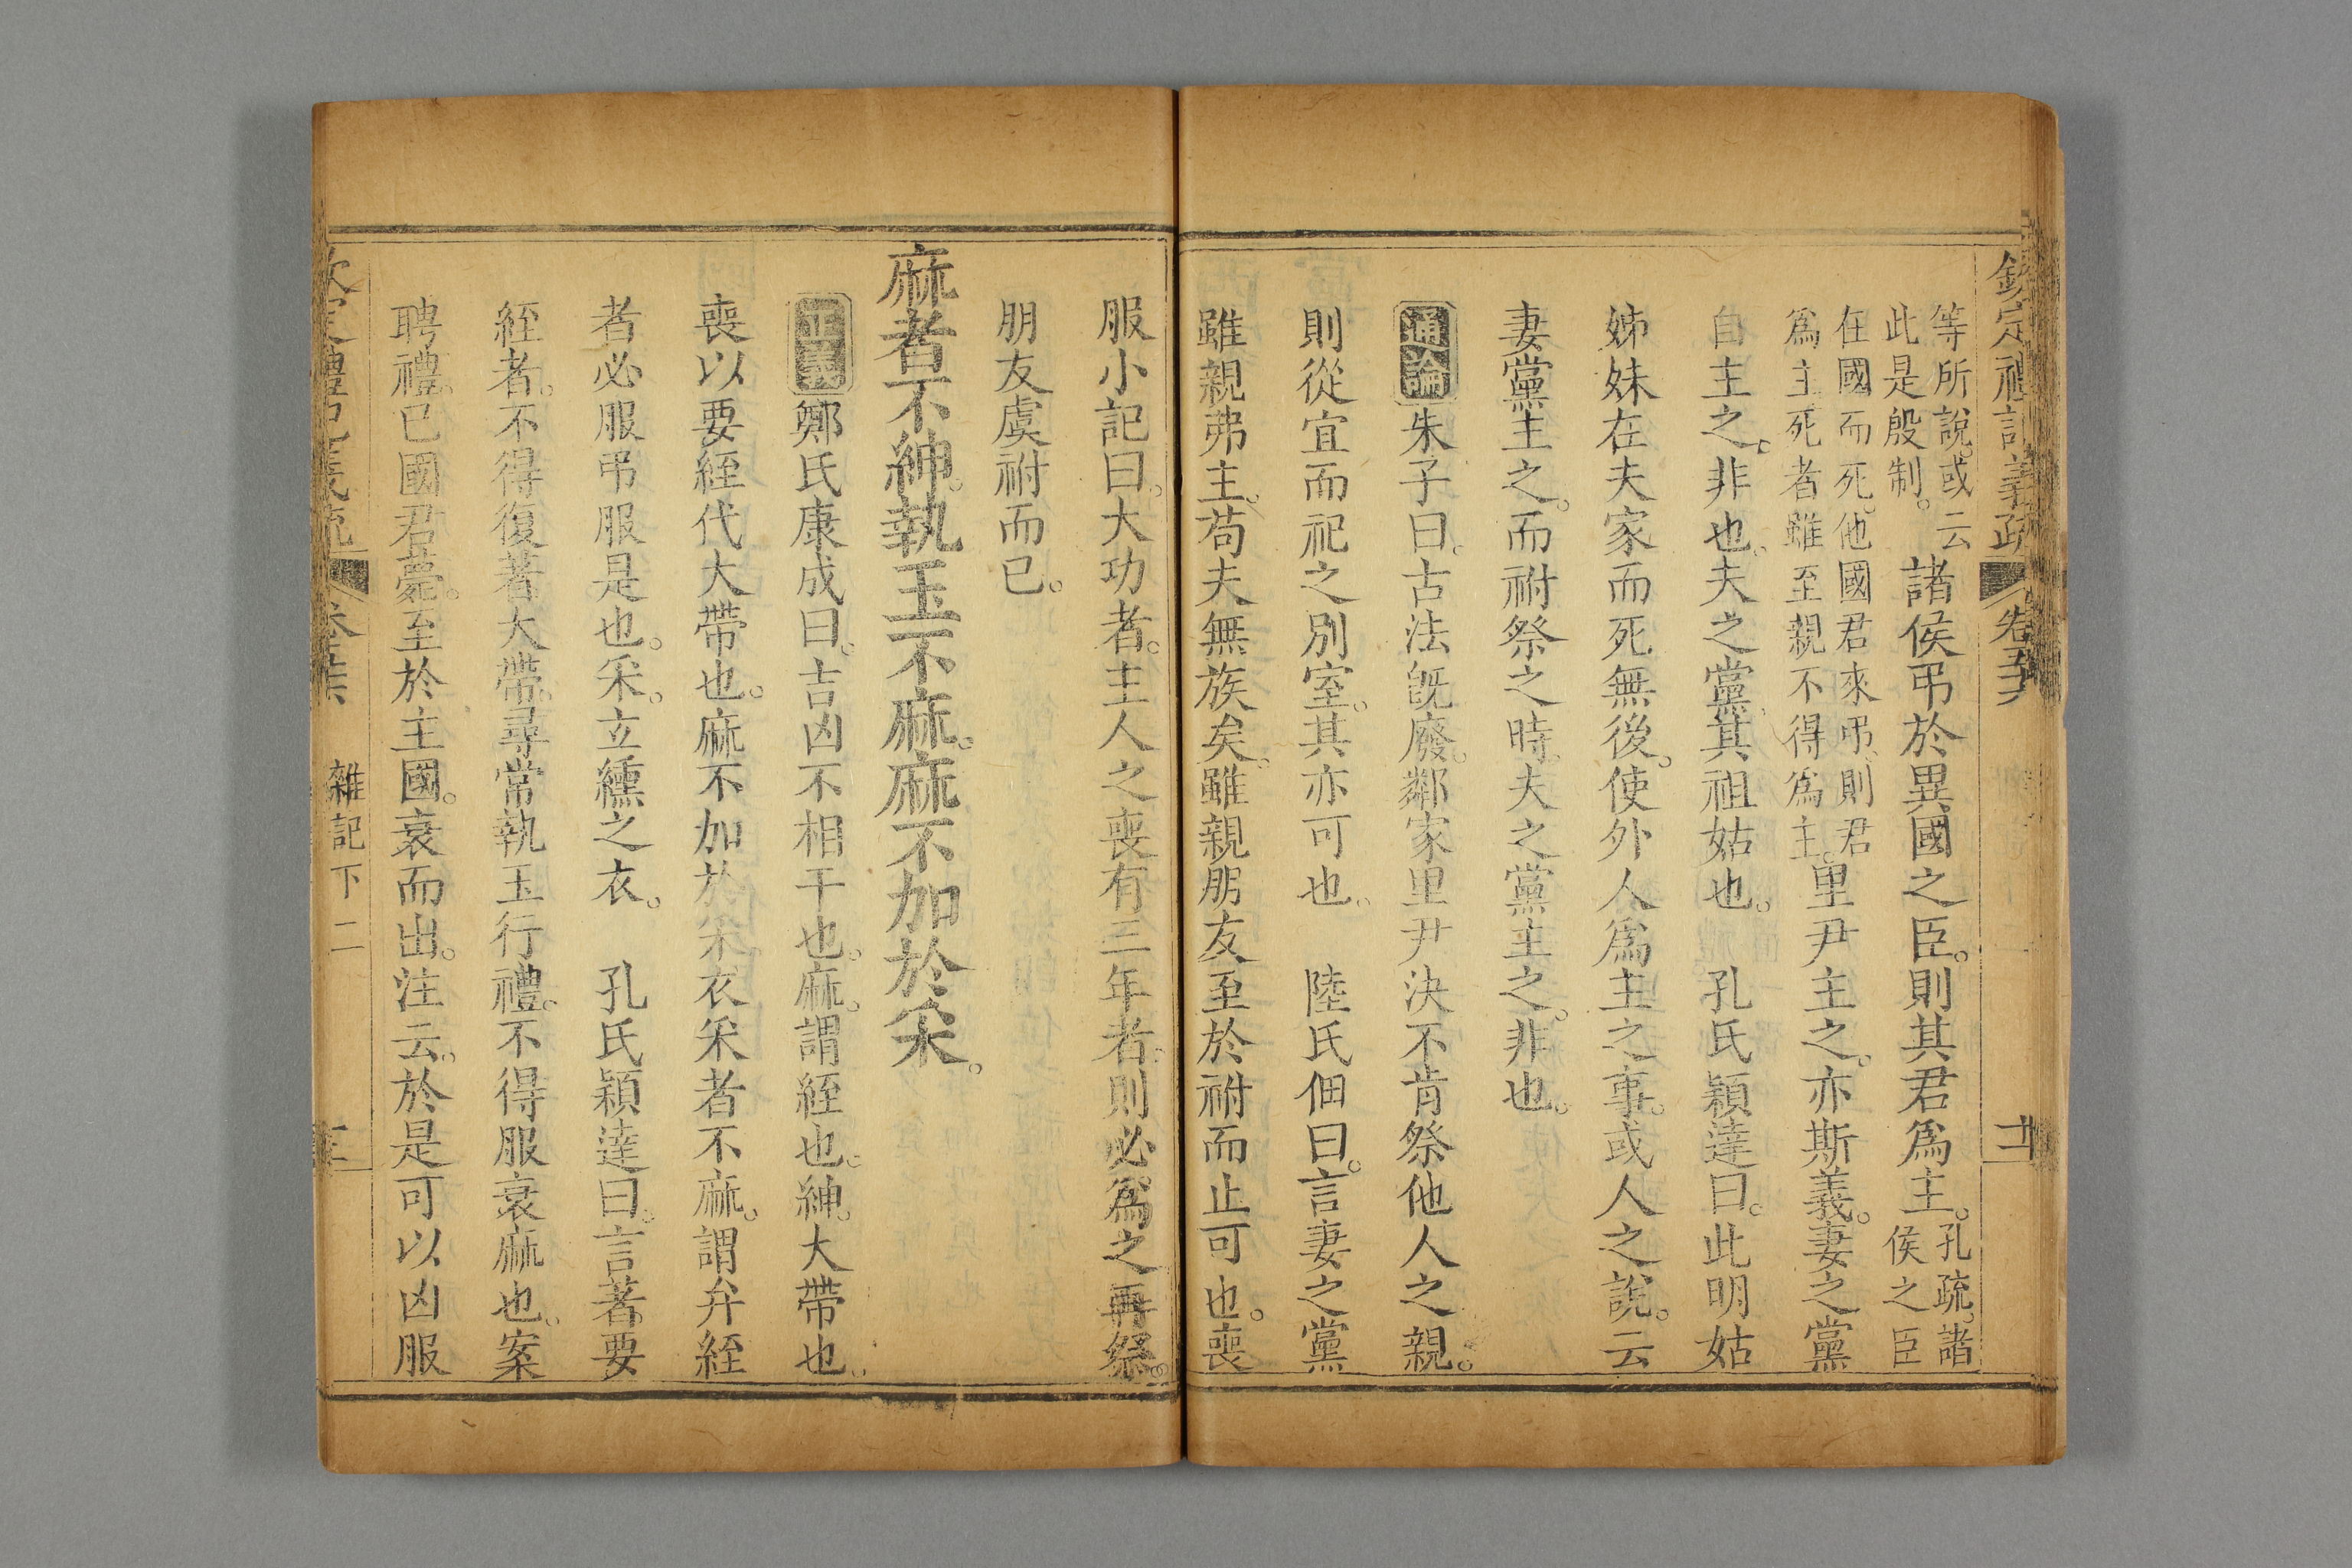 欽定禮記義疏　卷五十六
等所說。或云
此是殷制。
諸侯弔於異國之臣。則其君爲主。
孔疏。諸
侯之臣
在國而死。他國君來弔。則君
爲主。死者雖至親不得爲主。
里尹主之。亦斯義。妻之黨
自主之。非也。夫之黨。其祖姑也。　孔氏穎達曰。此明姑
姊妹在夫家而死無後。使外人爲主之事。或人之說。云
妻黨主之。而祔祭之時。夫之黨主之。非也。
通論朱子曰。古法旣廢。鄰家里尹決不肯祭他人之親。
則從宜而祀之別室。其亦可也。　陸氏佃曰。言妻之黨
雖親弗主。苟夫無族矣。雖親朋友至於祔而止可也。喪
服小記曰。大功者。主人之喪有三年者。則必爲之再祭。
朋友虞祔而已。
麻者不紳。執玉不麻。麻不加於采。
正義鄭氏康成曰。吉凶不相干也。麻。謂絰也。紳。大帶也。
喪以要絰代大帶也。麻不加於采。衣采者不麻。謂弁絰
者必服弔服是也。采。玄纁之衣。　孔氏穎達曰。言著要
絰者。不得復著大帶。尋常執玉行禮。不得服衰麻也。案
聘禮。已國君薨。至於主國。衰而出。注云。於是可以凶服
欽定禮記義疏　雜記下二